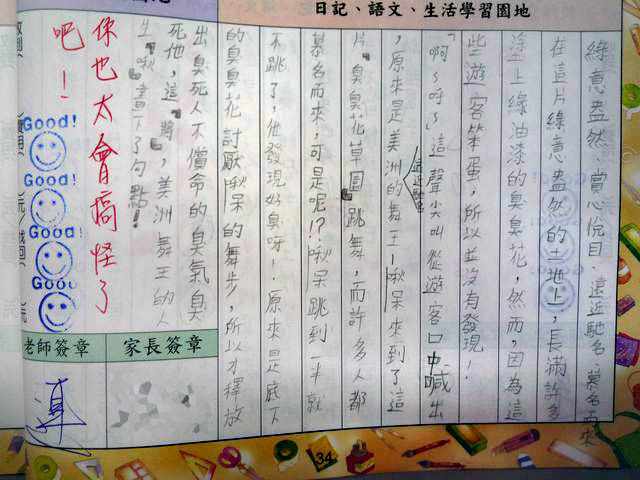 日記、語文、生活學習園地
綠意盎然 賞心悅目 遠近馳名 慕名而來
在這片綠意盎然的土地上,長滿許多
塗上綠油漆的臭臭花,然而,因為這
些遊客笨蛋,所以並沒有發現!
「啊~呼~」這聲尖叫從遊客口中喊出
,原來是美洲的舞王—啾呆來到了這
遠近馳名
片臭臭花草園跳舞,而許多人都
慕名而來,可是呢!?啾呆跳到一半就
不跳了,他發現好臭呀!原來是底下
的臭臭花討厭啾呆的舞步,所以才釋放
出臭死人不償命的臭氣臭
死他,這將美洲舞王的人
生啾畫下了句點!
你也太會搞怪了
吧!
Good!
Good!
Good!
Good!
家長簽章
老師簽章
34